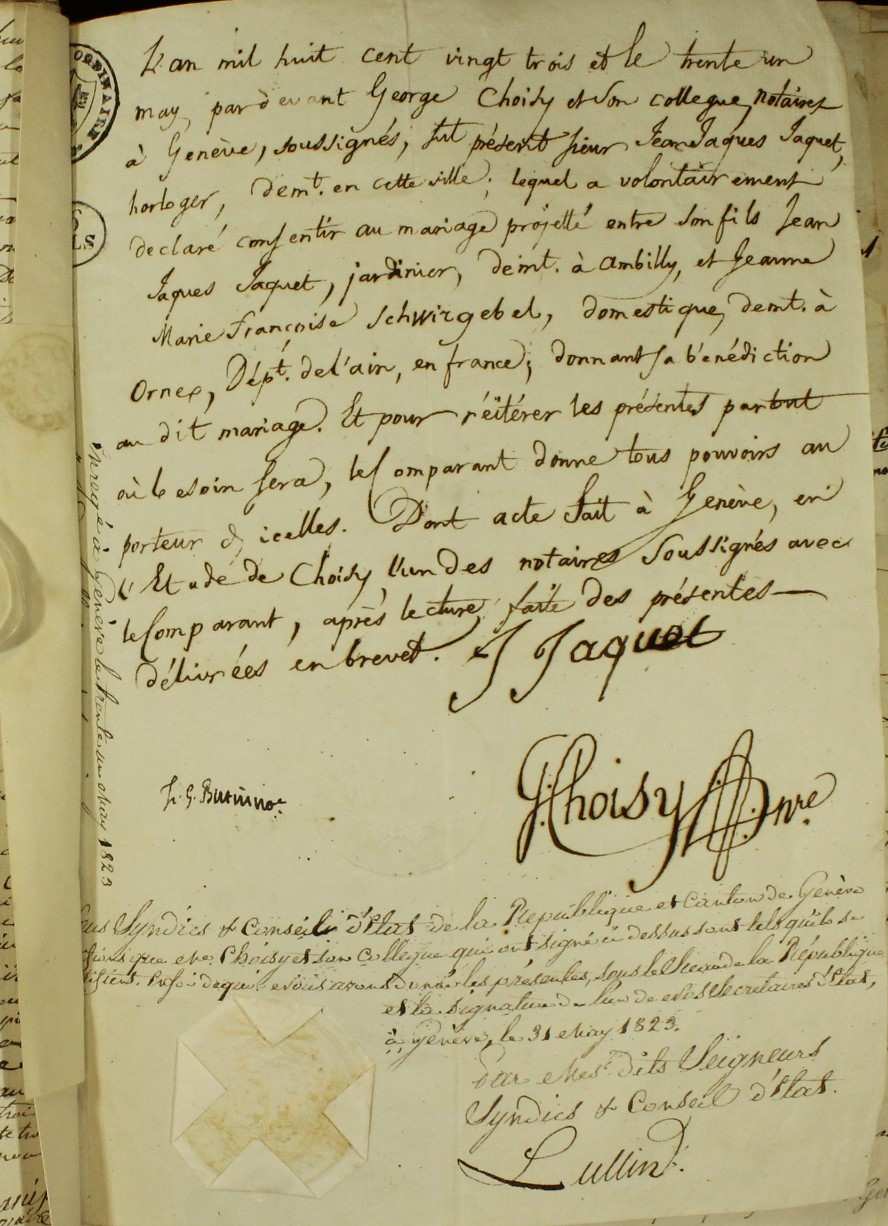 L'an mil huit cent vingt trois et le trente un
may, par devant George Choisy et son collegue, notaires
à Genève, soussignés, fut présent sieur Jean Jaques Jaquet,
horloger, demt. en cette ville; lequel a volontairement
declaré consentir au mariage projetté entre son fils Jean
Jaques Jaquet, jardinier, demt. à Ambilly, et Jeanne
Marie Françoise Schwirgebel, domestique, demt. à
Ornex, Dépt. de l'ain, en france; donnant sa bénédiction
au dit mariage. Et pour réitérer les présentes partout
où besoin sera, le Comparant donne tous pouvoirs au
porteur d'icelles. Dont acte fait à Genève, en
l'Etude de Choisy l'un des notaires soussignés avec
le Comparant, après lecture faite des présentes
délivrées en brevet. J Jaquet
G. Choisy nre
Enregé à Genève le trente un May 1823
Nous Syndics & Conseil d'Etat de la République et Canton de Genève
que Me. Choisy et son Collegue qui ont signé ci dessus sont tels qu'ils se
qualifient. En foi de quoi Nous avons donné les présentes, sous le Sceau de la République
et la signature de l'un de Nos Secretaires d'Etat,
à Genève, le 31 May 1823.
Par Mes dits Seigneurs
Syndics & Conseil d'Etat.
Lullin